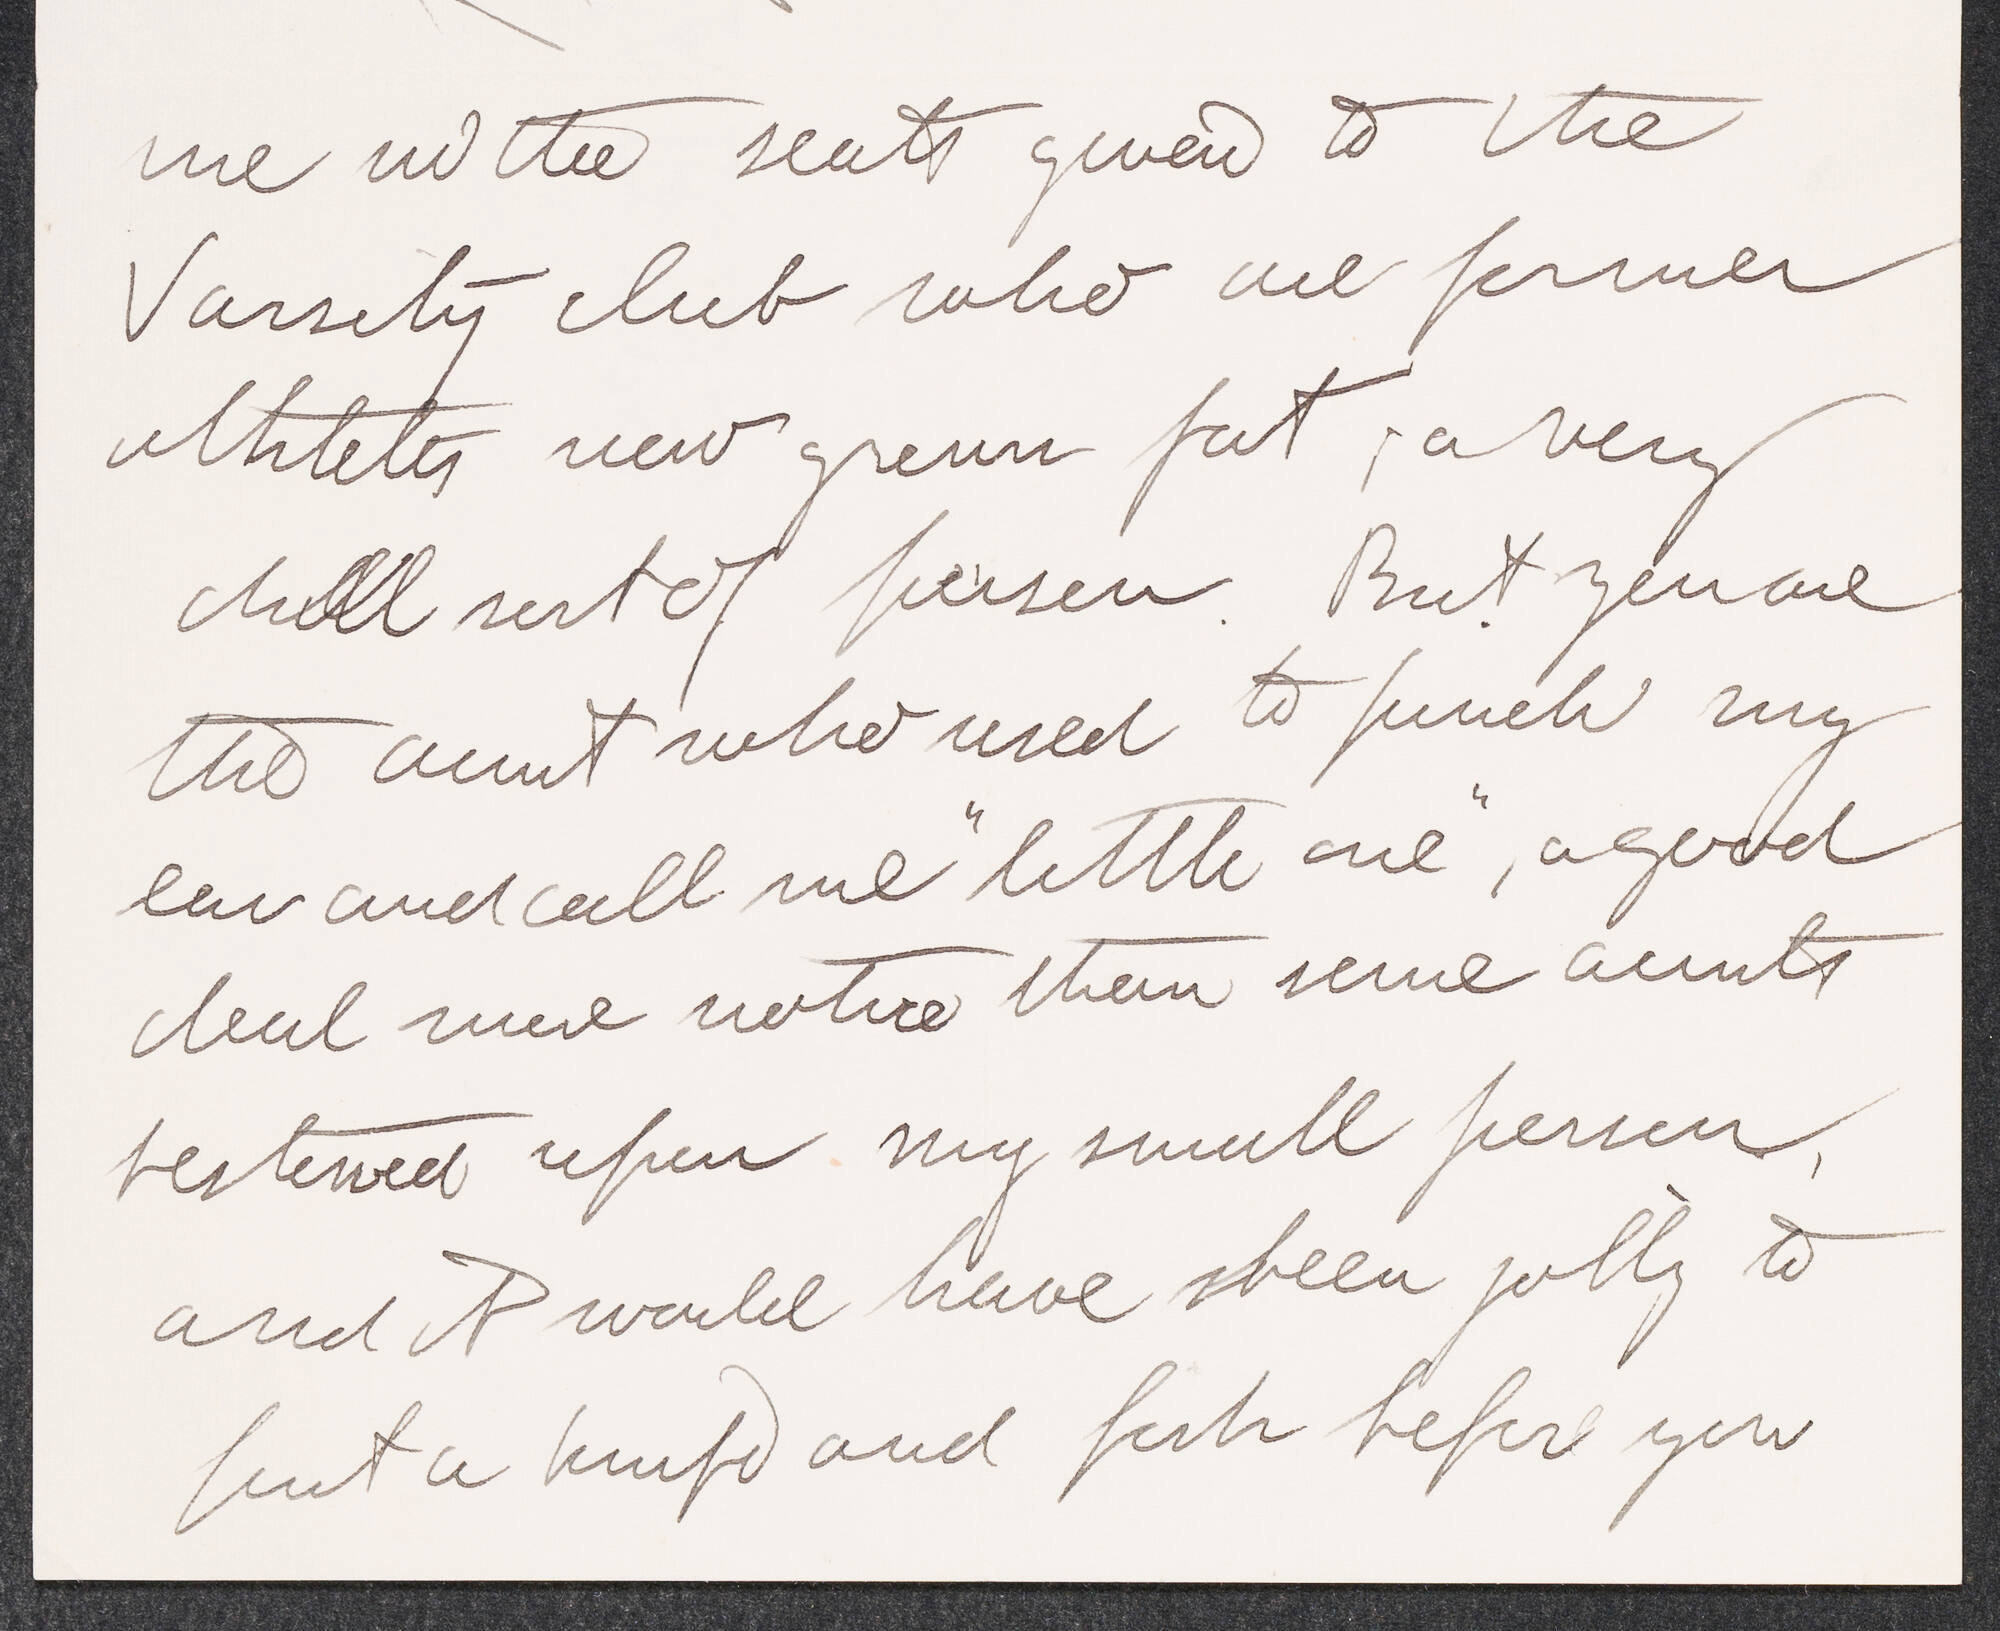 me in the seats given to the
Varsity club who are former
athletes now grown fat, a very
dull sort of person. But you are
the aunt who used to pinch my
ear and call me "little one", a good
deal more notice than some aunts
bestowed upon my small person,
and it would have been jolly to
put a knife and fork before you